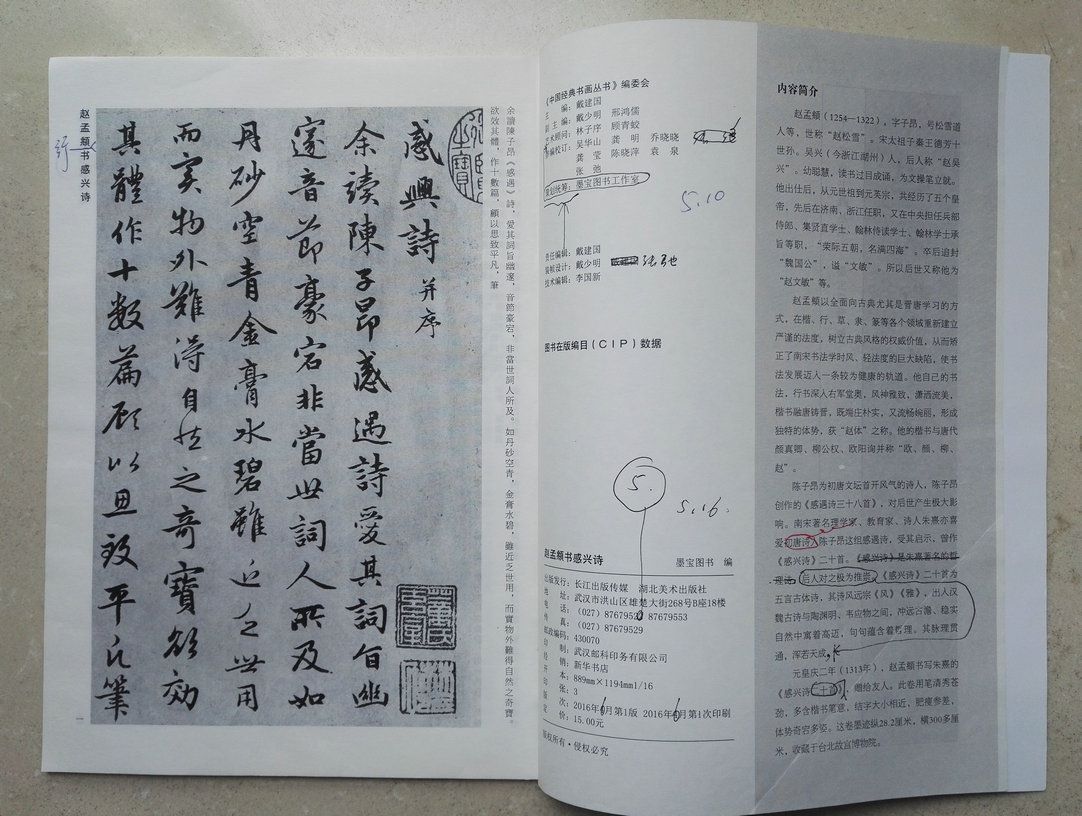 赵孟頫书感兴诗
感興詩并序
余讀陳子昂感遇詩愛其詞旨幽
邃音節豪宕非當世詞人所及如
丹砂空青金膏水碧雖近乏世用
而實物外難得自然之奇寶欲効
其體作十數篇顾以思致平凡筆
余讀陳子昂《感遇》詩，愛其詞旨幽邃，音節豪宕，非當世詞人所及。如丹砂空青，金膏水碧，雖近乏世用，而實物外難得自然之奇寶。
欲效其體，作十數篇，顧以思致平凡，筆
一
《中国经典书画丛书》编委会
主　　编：戴建国
副 主 编：戴少明　邢鸿儒
艺术顾问：林子序　顾青蛟
责编校订：吴华山　龚　明　乔晓晓
龚　莹　陈晓萍　袁　泉
张　弛
策划统筹：墨宝图书工作室
5.10
责任编辑：戴建国
装帧设计：戴少明 张弛
技术编辑：李国新
图书在版编目（CIP）数据
5.
5.16.
赵孟頫书感兴诗
墨宝图书　编
出版发行：长江出版传媒　湖北美术出版社
地　　址：武汉市洪山区雄楚大街268号B座18楼
电　　话：(027) 87679520　87679553
传　　真：(027) 87679529
邮政编码：430070
印　　制：武汉邮科印务有限公司
经　　销：新华书店
开　　本：889mm×1194mm1/16
印　　张：3
版　　次：2016年6月第1版 2016年6月第1次印刷
定　　价：15.00元
版权所有·侵权必究
内容简介
赵孟頫（1254—1322），字子昂，号松雪道
人等，世称“赵松雪”。宋太祖子秦王德芳十
世孙。吴兴（今浙江湖州）人，后人称“赵吴
兴”。幼聪慧，读书过目成诵，为文操笔立就。
他出仕后，从元世祖到元英宗，共经历了五个皇
帝，先后在济南、浙江任职，又在中央担任兵部
侍郎、集贤直学士、翰林侍读学士、翰林学士承
旨等职，“荣际五朝，名满四海”。卒后追封
“魏国公”，谥“文敏”。所以后世又称他为
“赵文敏”等。
赵孟頫以全面向古典尤其是晋唐学习的方
式，在楷、行、草、隶、篆等各个领域重新建立
严谨的法度，树立古典风格的权威价值，从而矫
正了南宋书法学时风、轻法度的巨大缺陷，使书
法发展迈入一条较为健康的轨道。他自己的书
法，行书深入右军堂奥，风神雅致，潇洒流美，
楷书融唐铸晋，既端庄朴实，又流畅婉丽，形成
独特的体势，获“赵体”之称。他的楷书与唐代
颜真卿、柳公权、欧阳询并称“欧、颜、柳、
赵”。
陈子昂为初唐文坛首开风气的诗人，陈子昂
创作的《感遇诗三十八首》，对后世产生极大影
响。南宋著名理学家、教育家、诗人朱熹亦喜
爱初唐诗人陈子昂这组感遇诗，受其启示，曾作
《感兴诗》二十首。《感兴诗》是朱熹著名的哲
理诗，后人对之极为推崇。《感兴诗》二十首为
五言古体诗，其诗风远宗《风》《雅》，出入汉
魏古诗与陶渊明、韦应物之间，冲远古澹、稳实
自然中寓着高迈，句句蕴含着哲理。其脉理贯
通，浑若天成。
元皇庆二年（1313年），赵孟頫书写朱熹的
《感兴诗二十首》，赠给友人。此卷用笔清秀苍
劲，多含楷书笔意，结字大小相近，肥瘦参差，
体势奇宕多姿。这卷墨迹纵28.2厘米，横300多厘
米，收藏于台北故宫博物院。